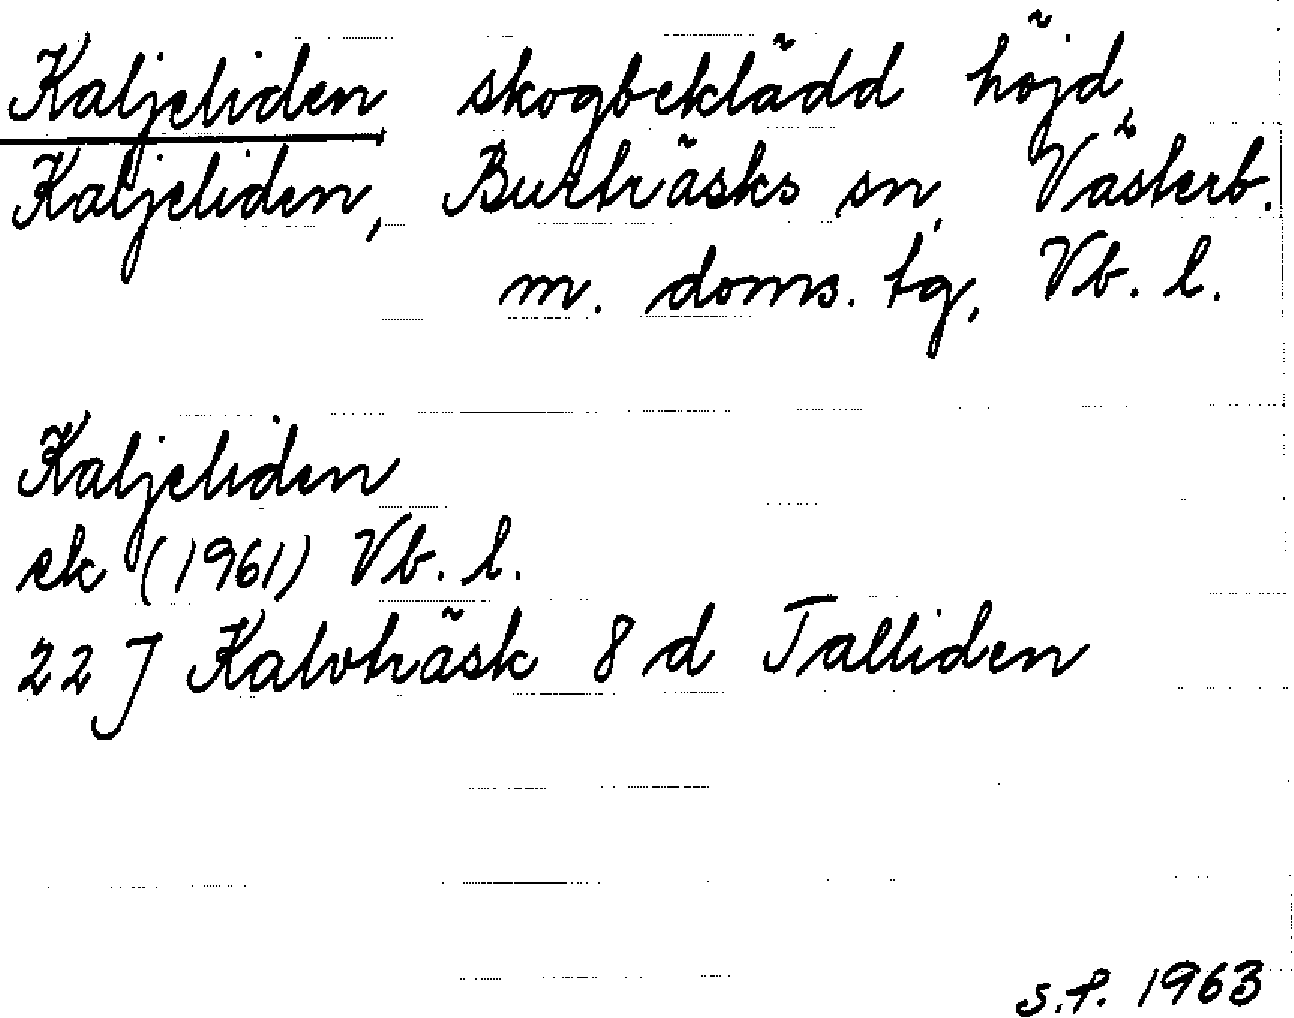 Kaljeliden skogbeklädd höjd,
Kaljeliden, Burträsks sn, Västerb.
m. doms. tg, Vb. l.
Kaljeliden
ek (1961) Vb. l.
22 J Kalvträsk 8 d Talliden
S.F. 1963